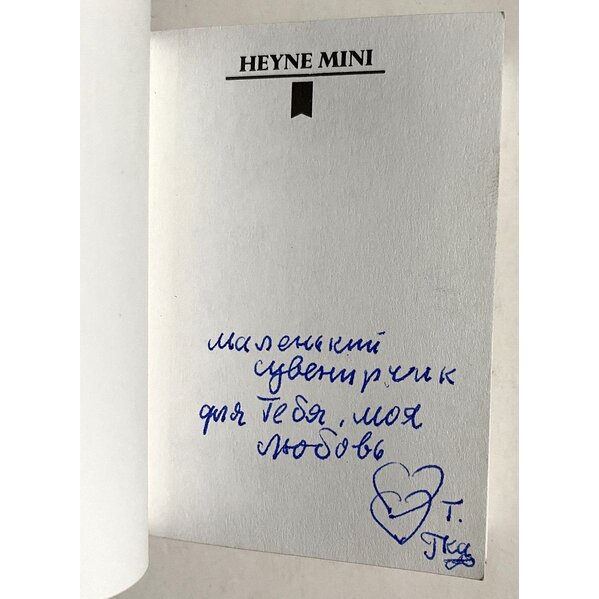 HEYNE MINI
маленький
сувенирчик
для Тебя, моя
любовь
Т.